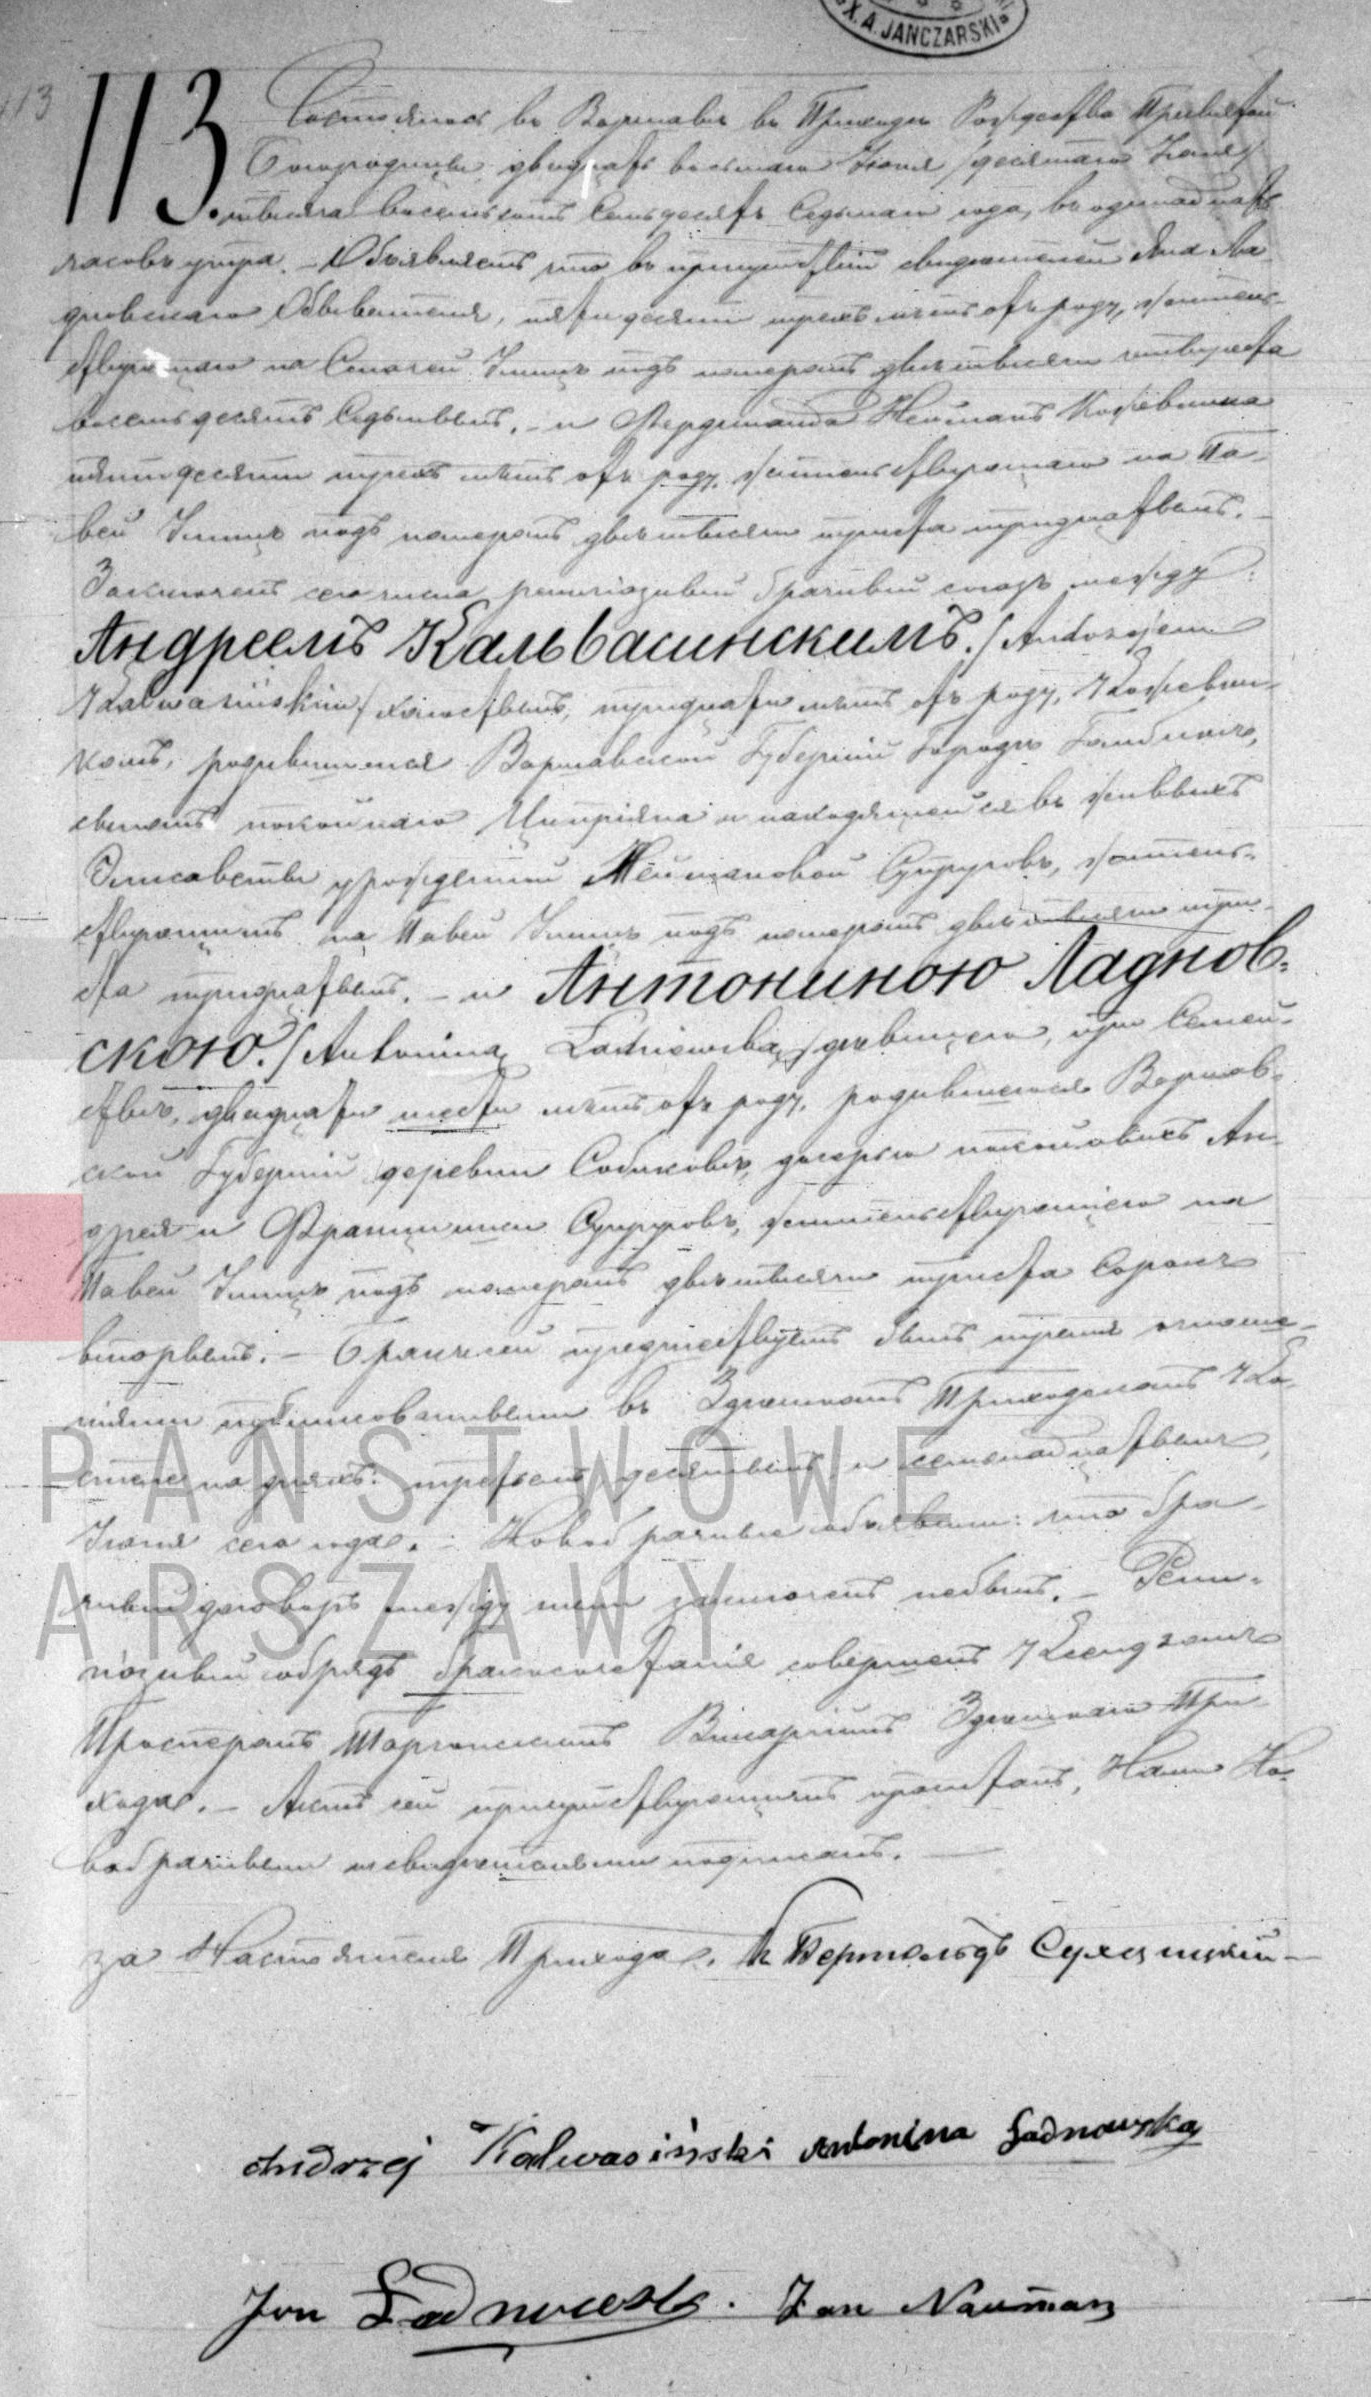 X. A. JANCZARSKI
113
113. Состоялось въ Варшавѣ въ Приходѣ Рождества Пресвятой
Богородицы, двадцать восьмаго Іюня /десятаго Іюля/
тысяча восемьсотъ семьдесятъ седьмаго года, въ одинадцать
часовъ утра. – Объявляемъ что въ присутствіи свидѣтелей Яна Ла-
дновскаго Обывателя, пятидесяти трехъ лѣтъ отъ роду, житель-
ствующаго на Смочей Улицѣ подъ номеромъ двѣ тысячи четыреста
восемьдесятъ седьмымъ, – и Фердинанда Нейманъ Кожевника
пятидесяти трехъ лѣтъ отъ роду, жительствующаго на Па-
вей Улицѣ подъ номеромъ двѣ тысячи триста тридцатымъ. –
Заключенъ сего числа религіозный брачный союзъ между:
Андреемъ Кальвасинскимъ. /Andrzejem
Kalwasińskim/ холостымъ, тридцати лѣтъ отъ роду, Кожевни-
комъ, родившимся Варшавской Губерніи Городѣ Гомбинѣ,
сыномъ покойнаго Ципріяна и находящейся въ живыхъ
Элисаветы урожденной Неймановой Супруговъ, житель-
ствующимъ на Павей Улицѣ подъ номеромъ двѣ тысячи три-
ста тридцатымъ. – и Антониною Ладнов-
скою. /Antoniną Ladnowską/ дѣвицею, при Семей-
ствѣ, двадцати шести лѣтъ отъ роду, родившеюся Варшав-
ской Губерніи деревни Собиковѣ, дочерью покойныхъ Ан-
дрея и Францишки Супруговъ, жительствующею на
Павей Улицѣ подъ номеромъ двѣ тысячи триста Сорокъ
вторымъ. – Браку сему предшествуетъ былъ тремя оглаше-
ніями публикованными въ Здѣшномъ Приходскомъ Ко-
стелѣ на дняхъ: третьемъ, десятымъ и семнадцатымъ,
Іюня сего года. – Новобрачные объявили: что бра-
чный договоръ между ними заключенъ небылъ. – Рели-
гіозный обрядъ бракосочетанія совершенъ Ксендзомъ
Просперомъ Викаріимъ Здѣшняго При-
хода. – Актъ сей присутствующимъ прочитанъ, Нами Но-
вобрачными и свидѣтелями подписанъ. –
за Настоятеля Прихода. К Бертольдъ
Andrzej Kalwasiński Antonina Ladnowska
Jan Ladnowski. Jan Nauman
PAŃSTWOWE
ARSZAWY